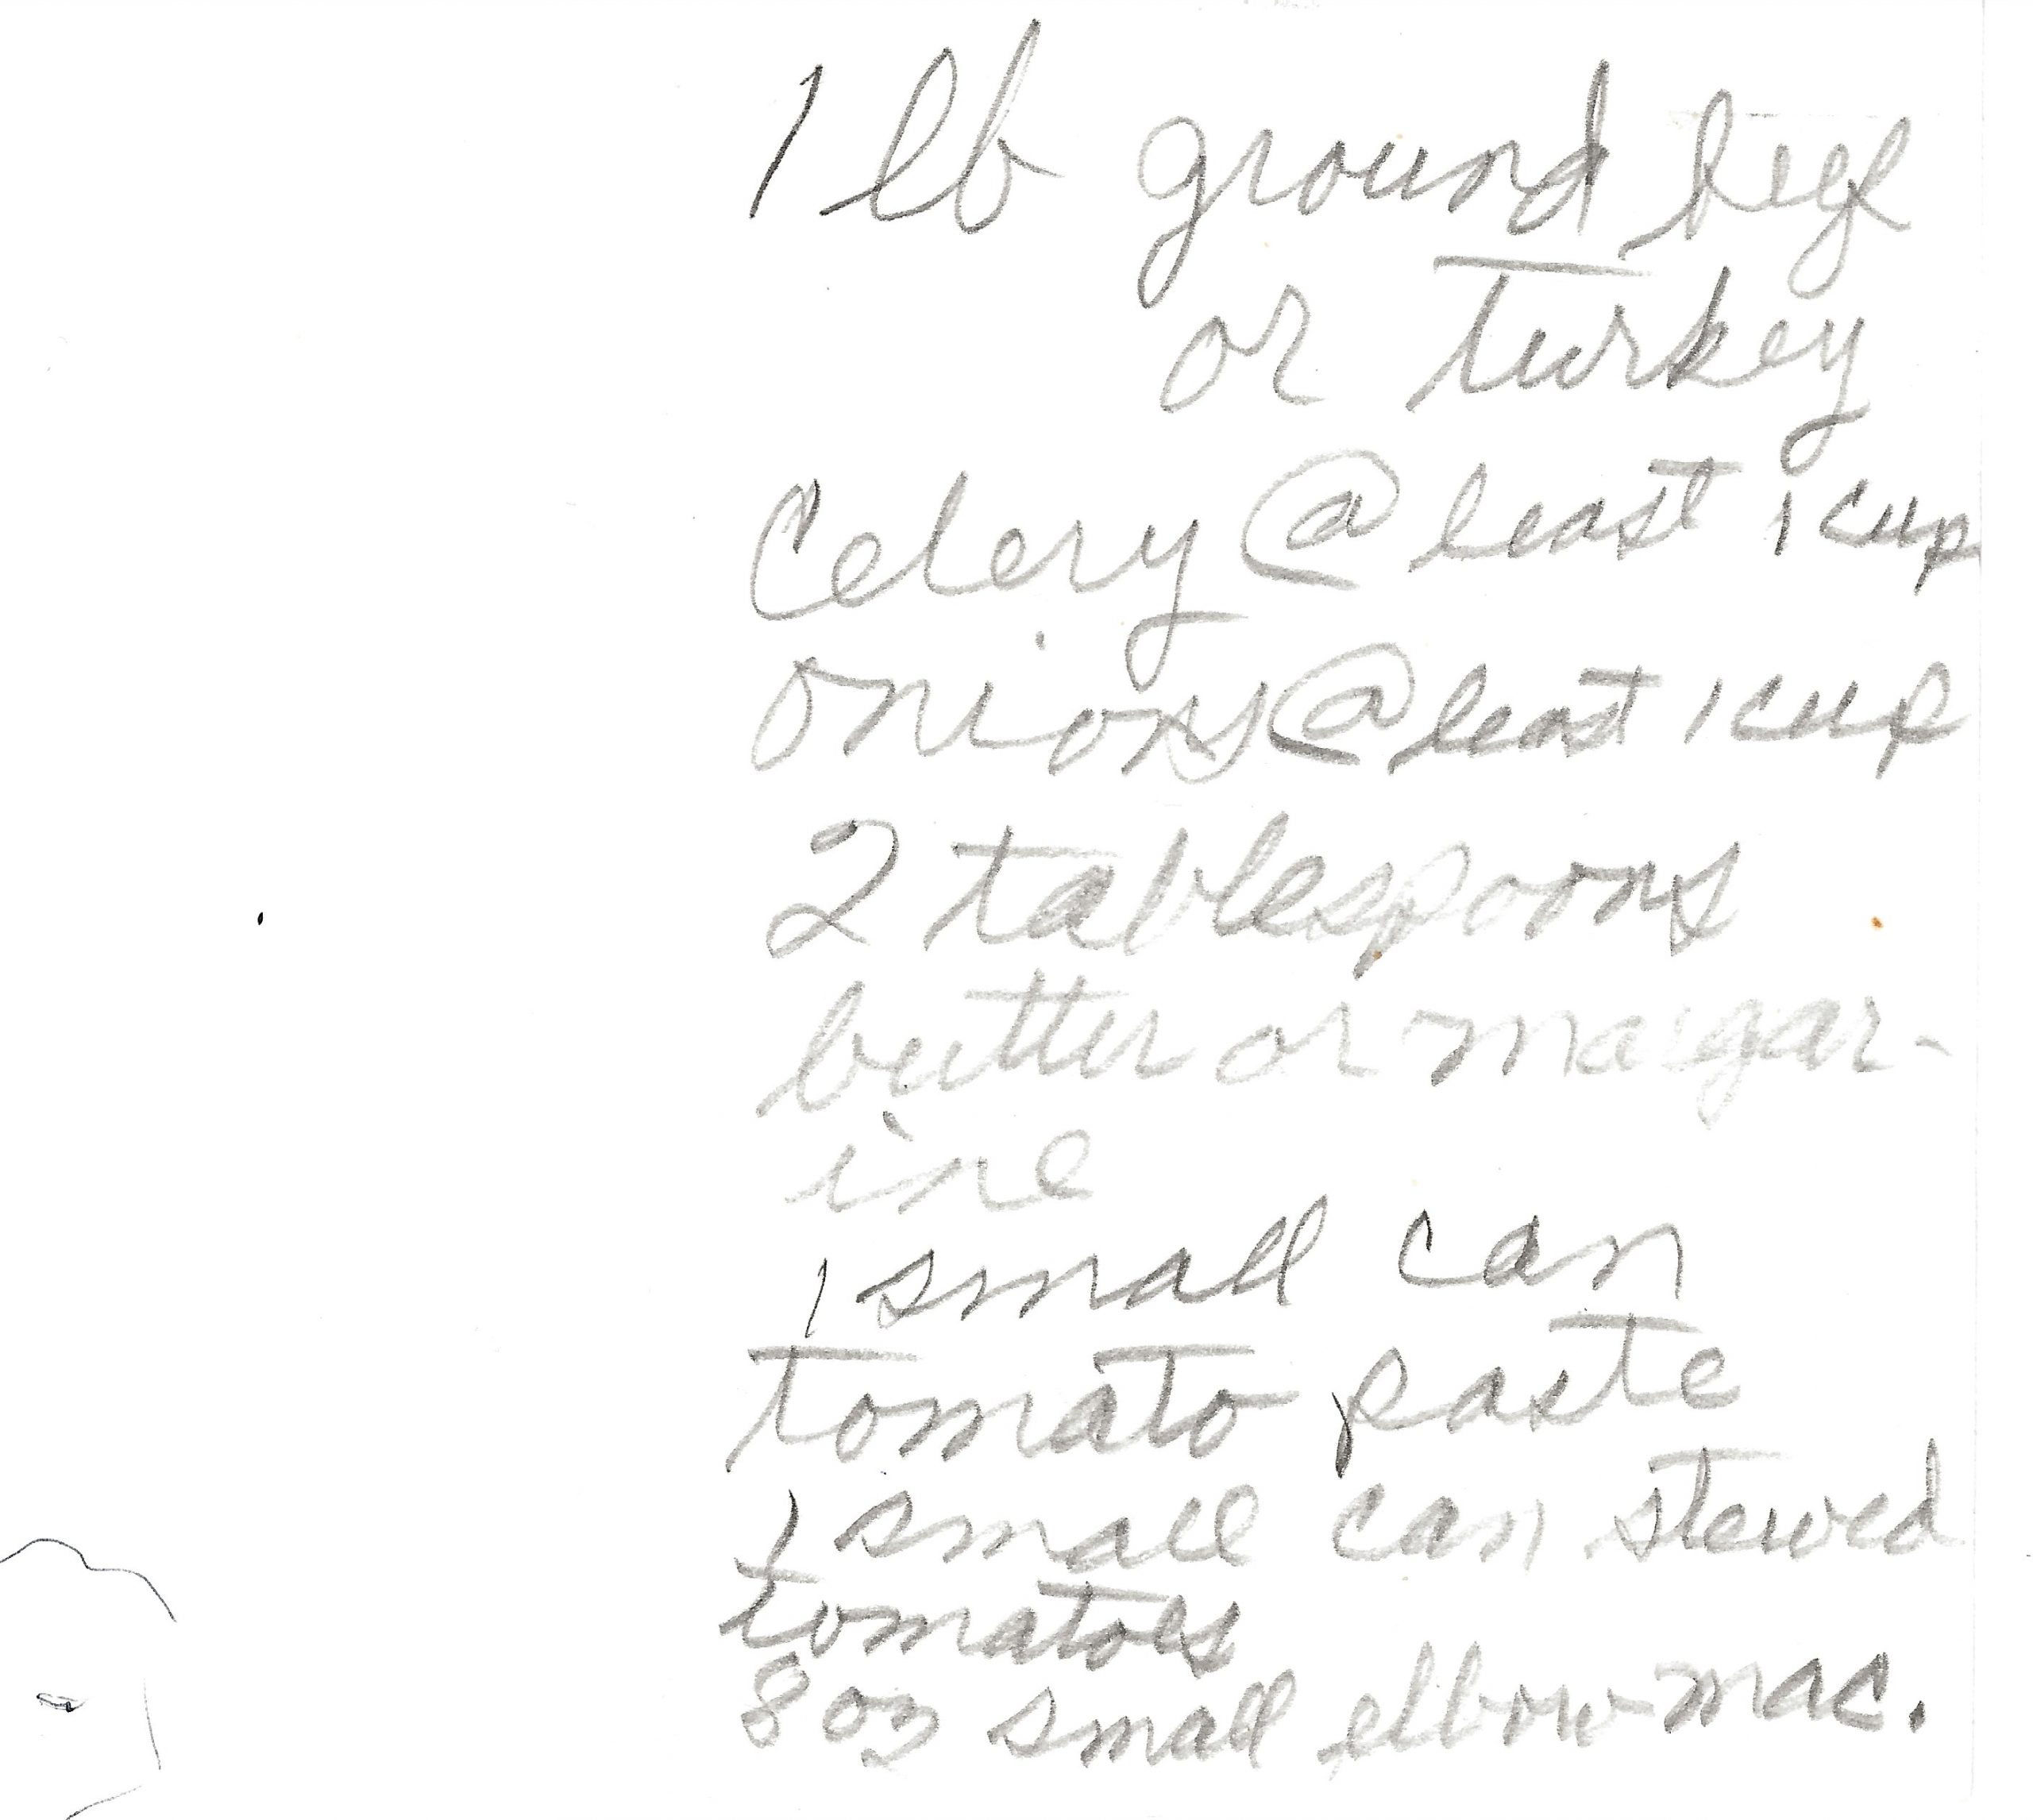 1 lb ground beef
or Turkey
Celery @ least 1 cup
Onions @ least 1 cup
2 tablespoons
butter or margar-
ine
1 small can
tomato paste
1 small can stewed
tomatoes
8 oz small elbow mac.